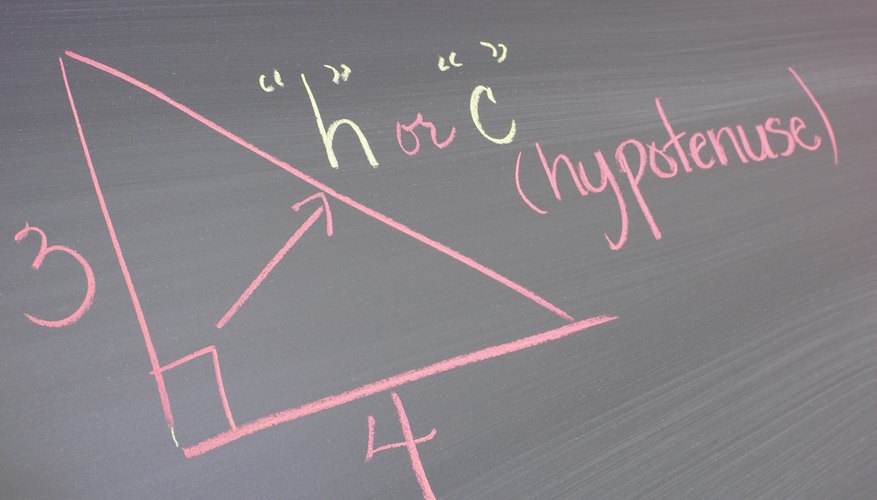 “h” or “c”
(hypotenuse)
3
4